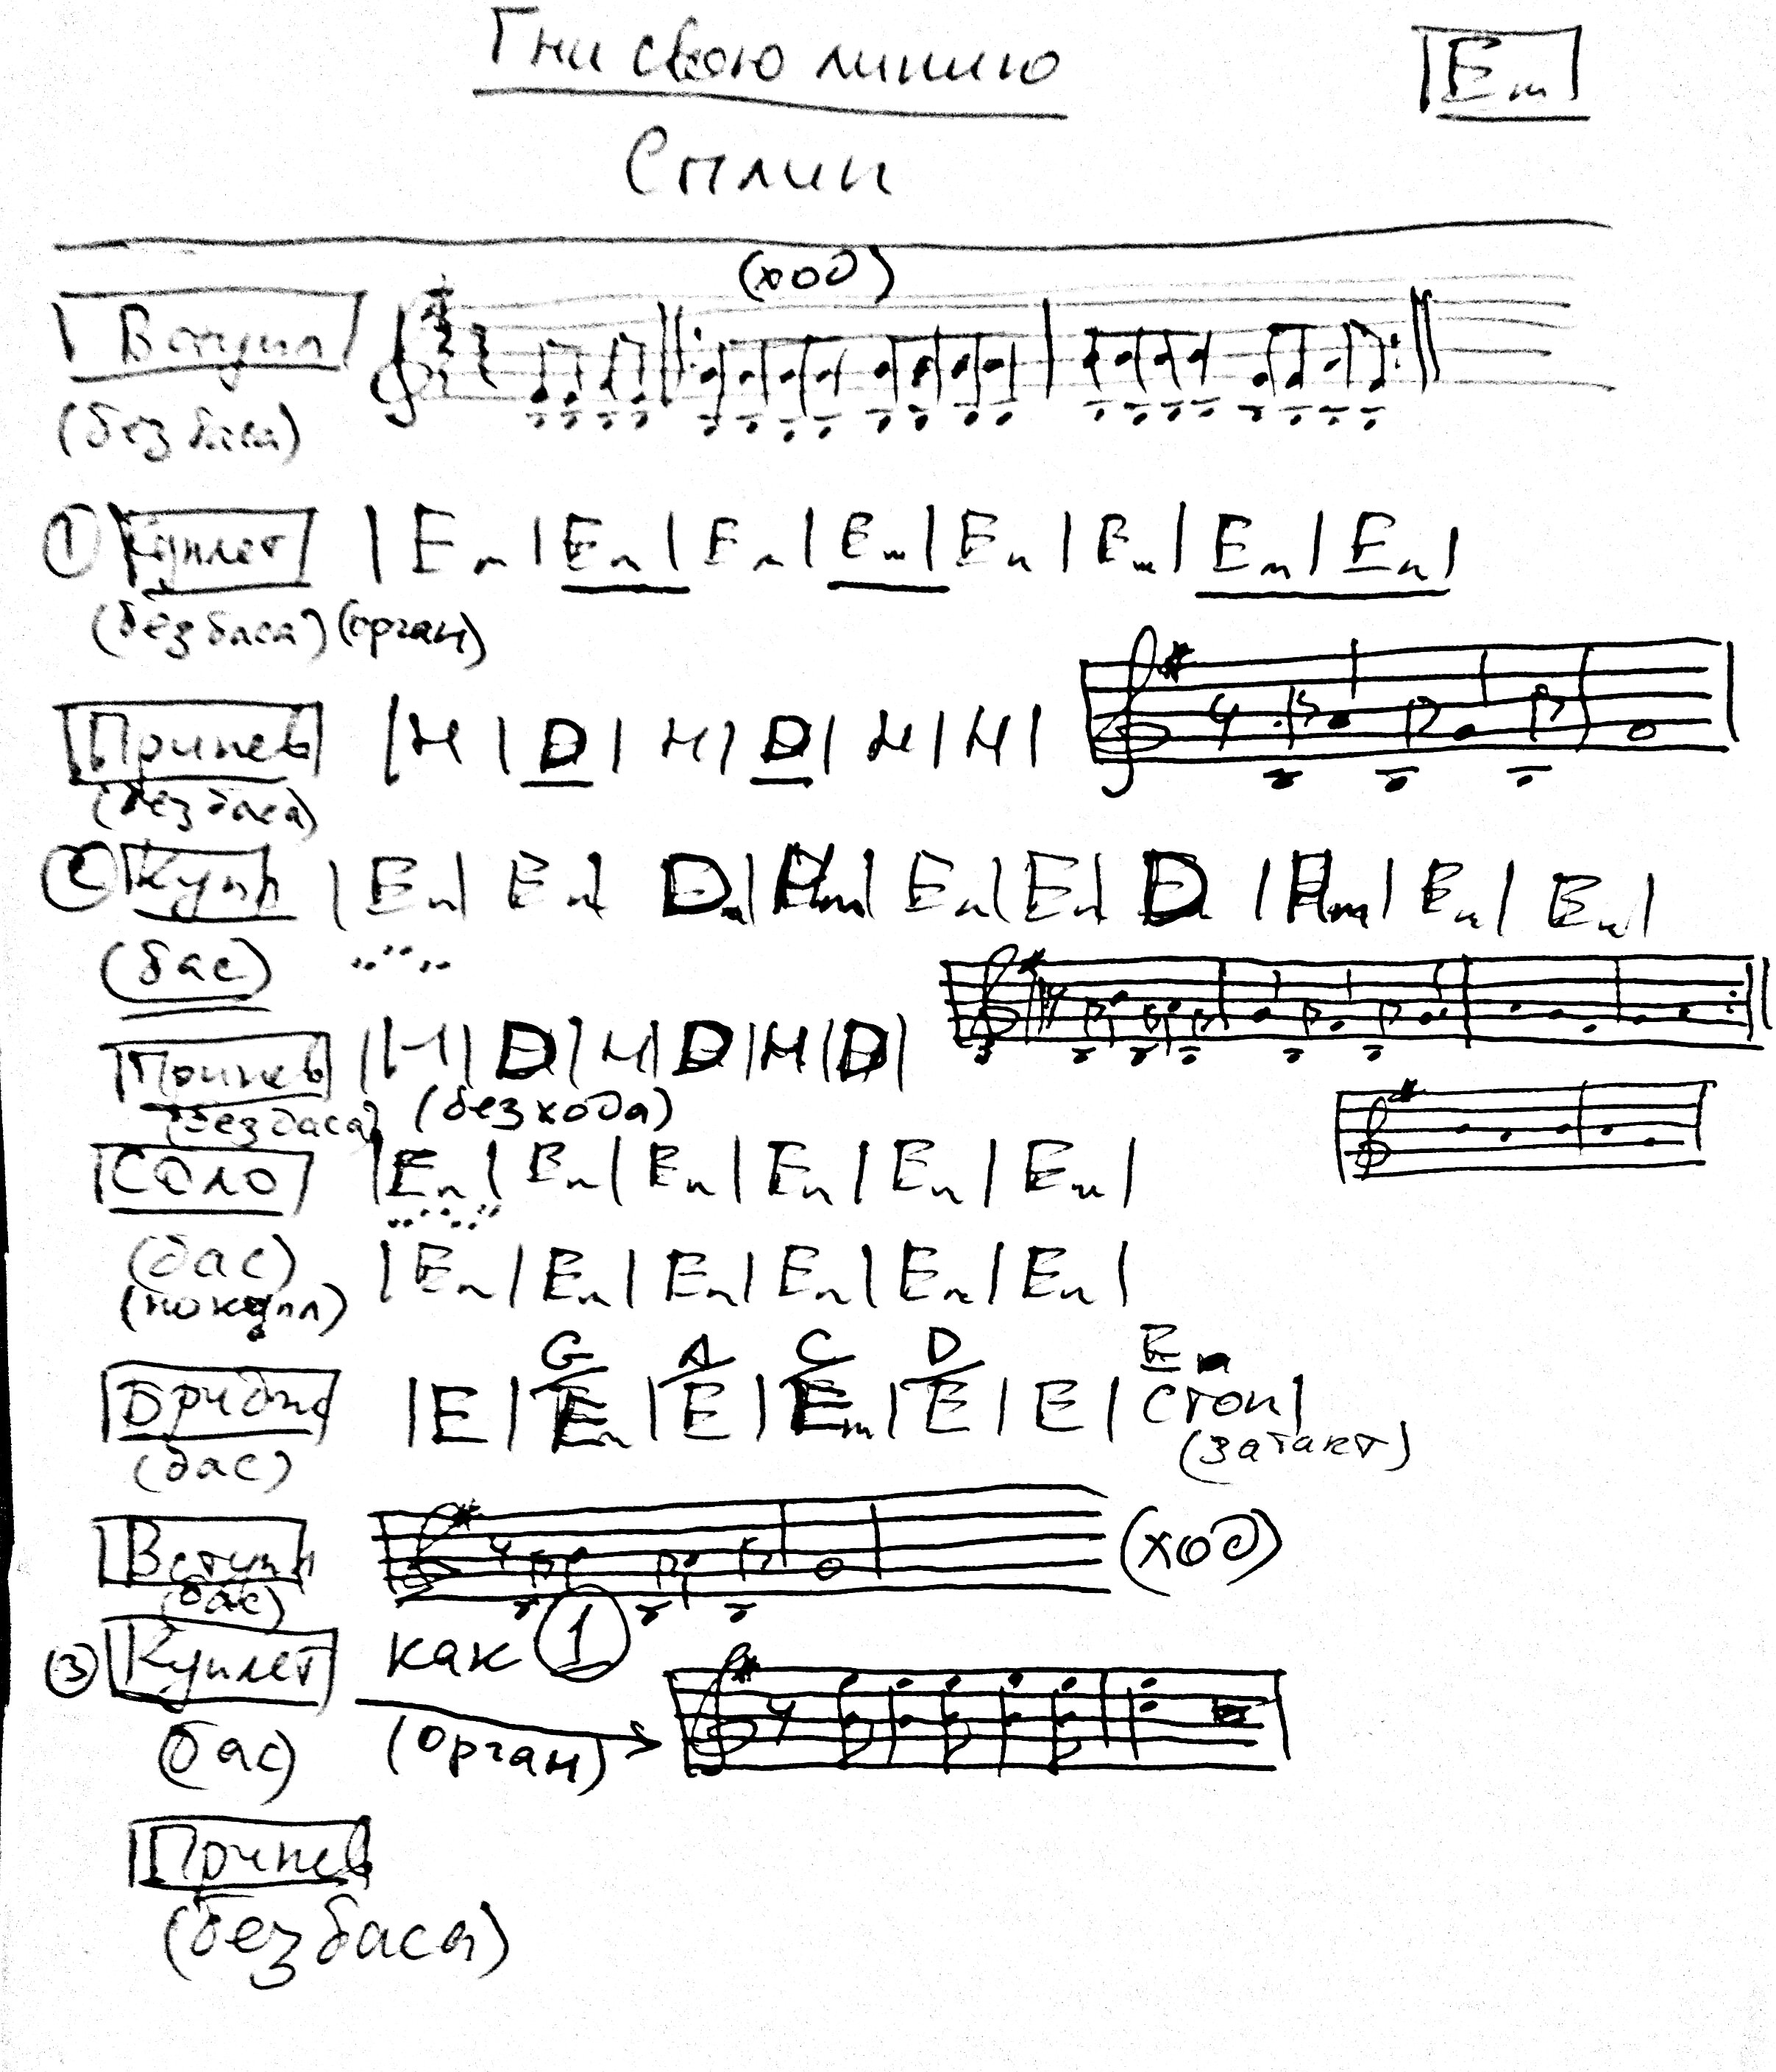 Гни свою линию
Em
Сплин
(ход)
Вступл
(без баса)
① Куплет | Em | Em | Em | Em | Em | Em | Em | Em |
(без баса) (орган)
Припев | H | D | H | D | H | H |
(без баса)
② Купл | Em | Em | D | Hm | Em | Em | D | Hm | Em | Em |
(бас)
Припев | H | D | H | D | H | D |
(без баса) (без хода)
Соло | Em | Em | Em | Em | Em | Em |
(бас) | Em | Em | Em | Em | Em | Em |
G A C D Em
Бридж | E | Em | E | Em | E | E | стоп |
(бас) (затакт)
Вступл (ход)
(бас)
③ Куплет как ①
(бас) (орган)
Припев
(без баса)